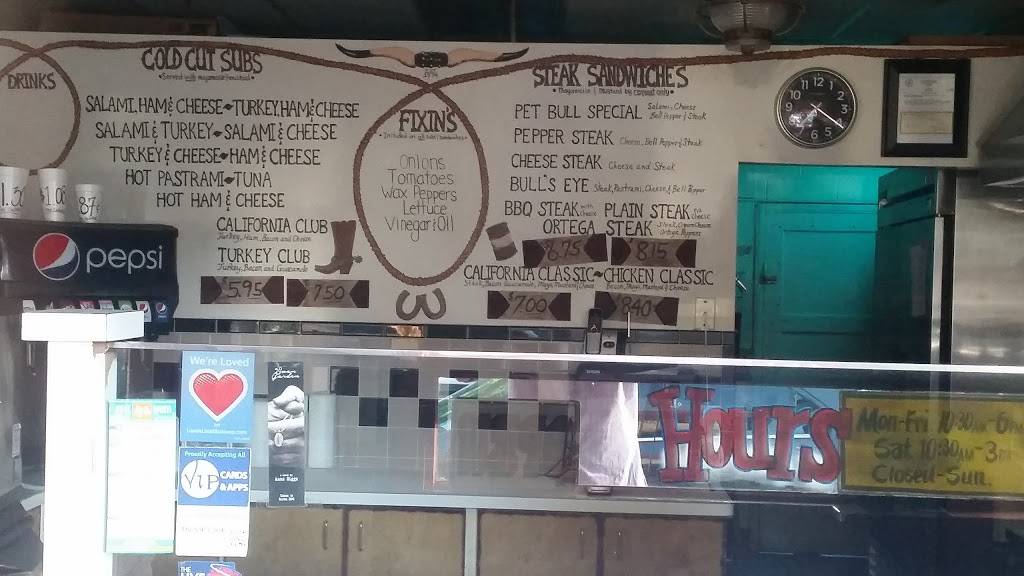 DRINKS
1.30
$1.08
87¢
pepsi
COLD CUT SUBS
• Served with mayonnaise/mustard •
SALAMI, HAM & CHEESE • TURKEY, HAM & CHEESE
SALAMI & TURKEY • SALAMI & CHEESE
TURKEY & CHEESE • HAM & CHEESE
HOT PASTRAMI • TUNA
HOT HAM & CHEESE
CALIFORNIA CLUB
Turkey, Ham, Bacon and Cheese
TURKEY CLUB
Turkey, Bacon and Guacamole
$5.95
$7.50
FIXIN'S
Onions
Tomatoes
Wax Peppers
Lettuce
Vinegar & Oil
STEAK SANDWICHES
• Mayonnaise & mustard by request only •
PET BULL SPECIAL Salami, Cheese
Bell Pepper & Steak
PEPPER STEAK Cheese, Bell Pepper & Steak
CHEESE STEAK Cheese and Steak
BULL'S EYE Steak, Pastrami, Cheese, & Bell Pepper
BBQ STEAK with Cheese PLAIN STEAK no Cheese
ORTEGA STEAK Steak, Cream Cheese
Ortega Peppers
$6.75
8.15
CALIFORNIA CLASSIC • CHICKEN CLASSIC
$7.00
$8.40
12
1
2
3
4
5
6
7
8
9
10
11
We're Loved
Proudly Accepting All
VIP CARDS
& APPS
THE
Hours
Mon-Fri 10:30AM-6PM
Sat 10:30AM-3PM
Closed-Sun.